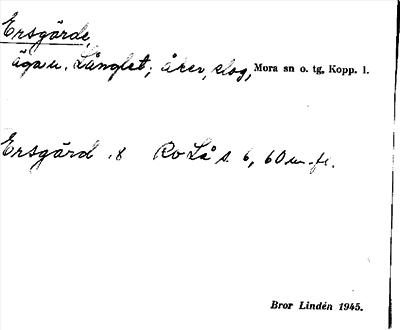 Ersgärde,
äga u. Långlet; åker, slog, Mora sn o. tg, Kopp. l.
Ersgärd .8 Ro Lå s. 6, 60 m. fl.
Bror Lindén 1945.